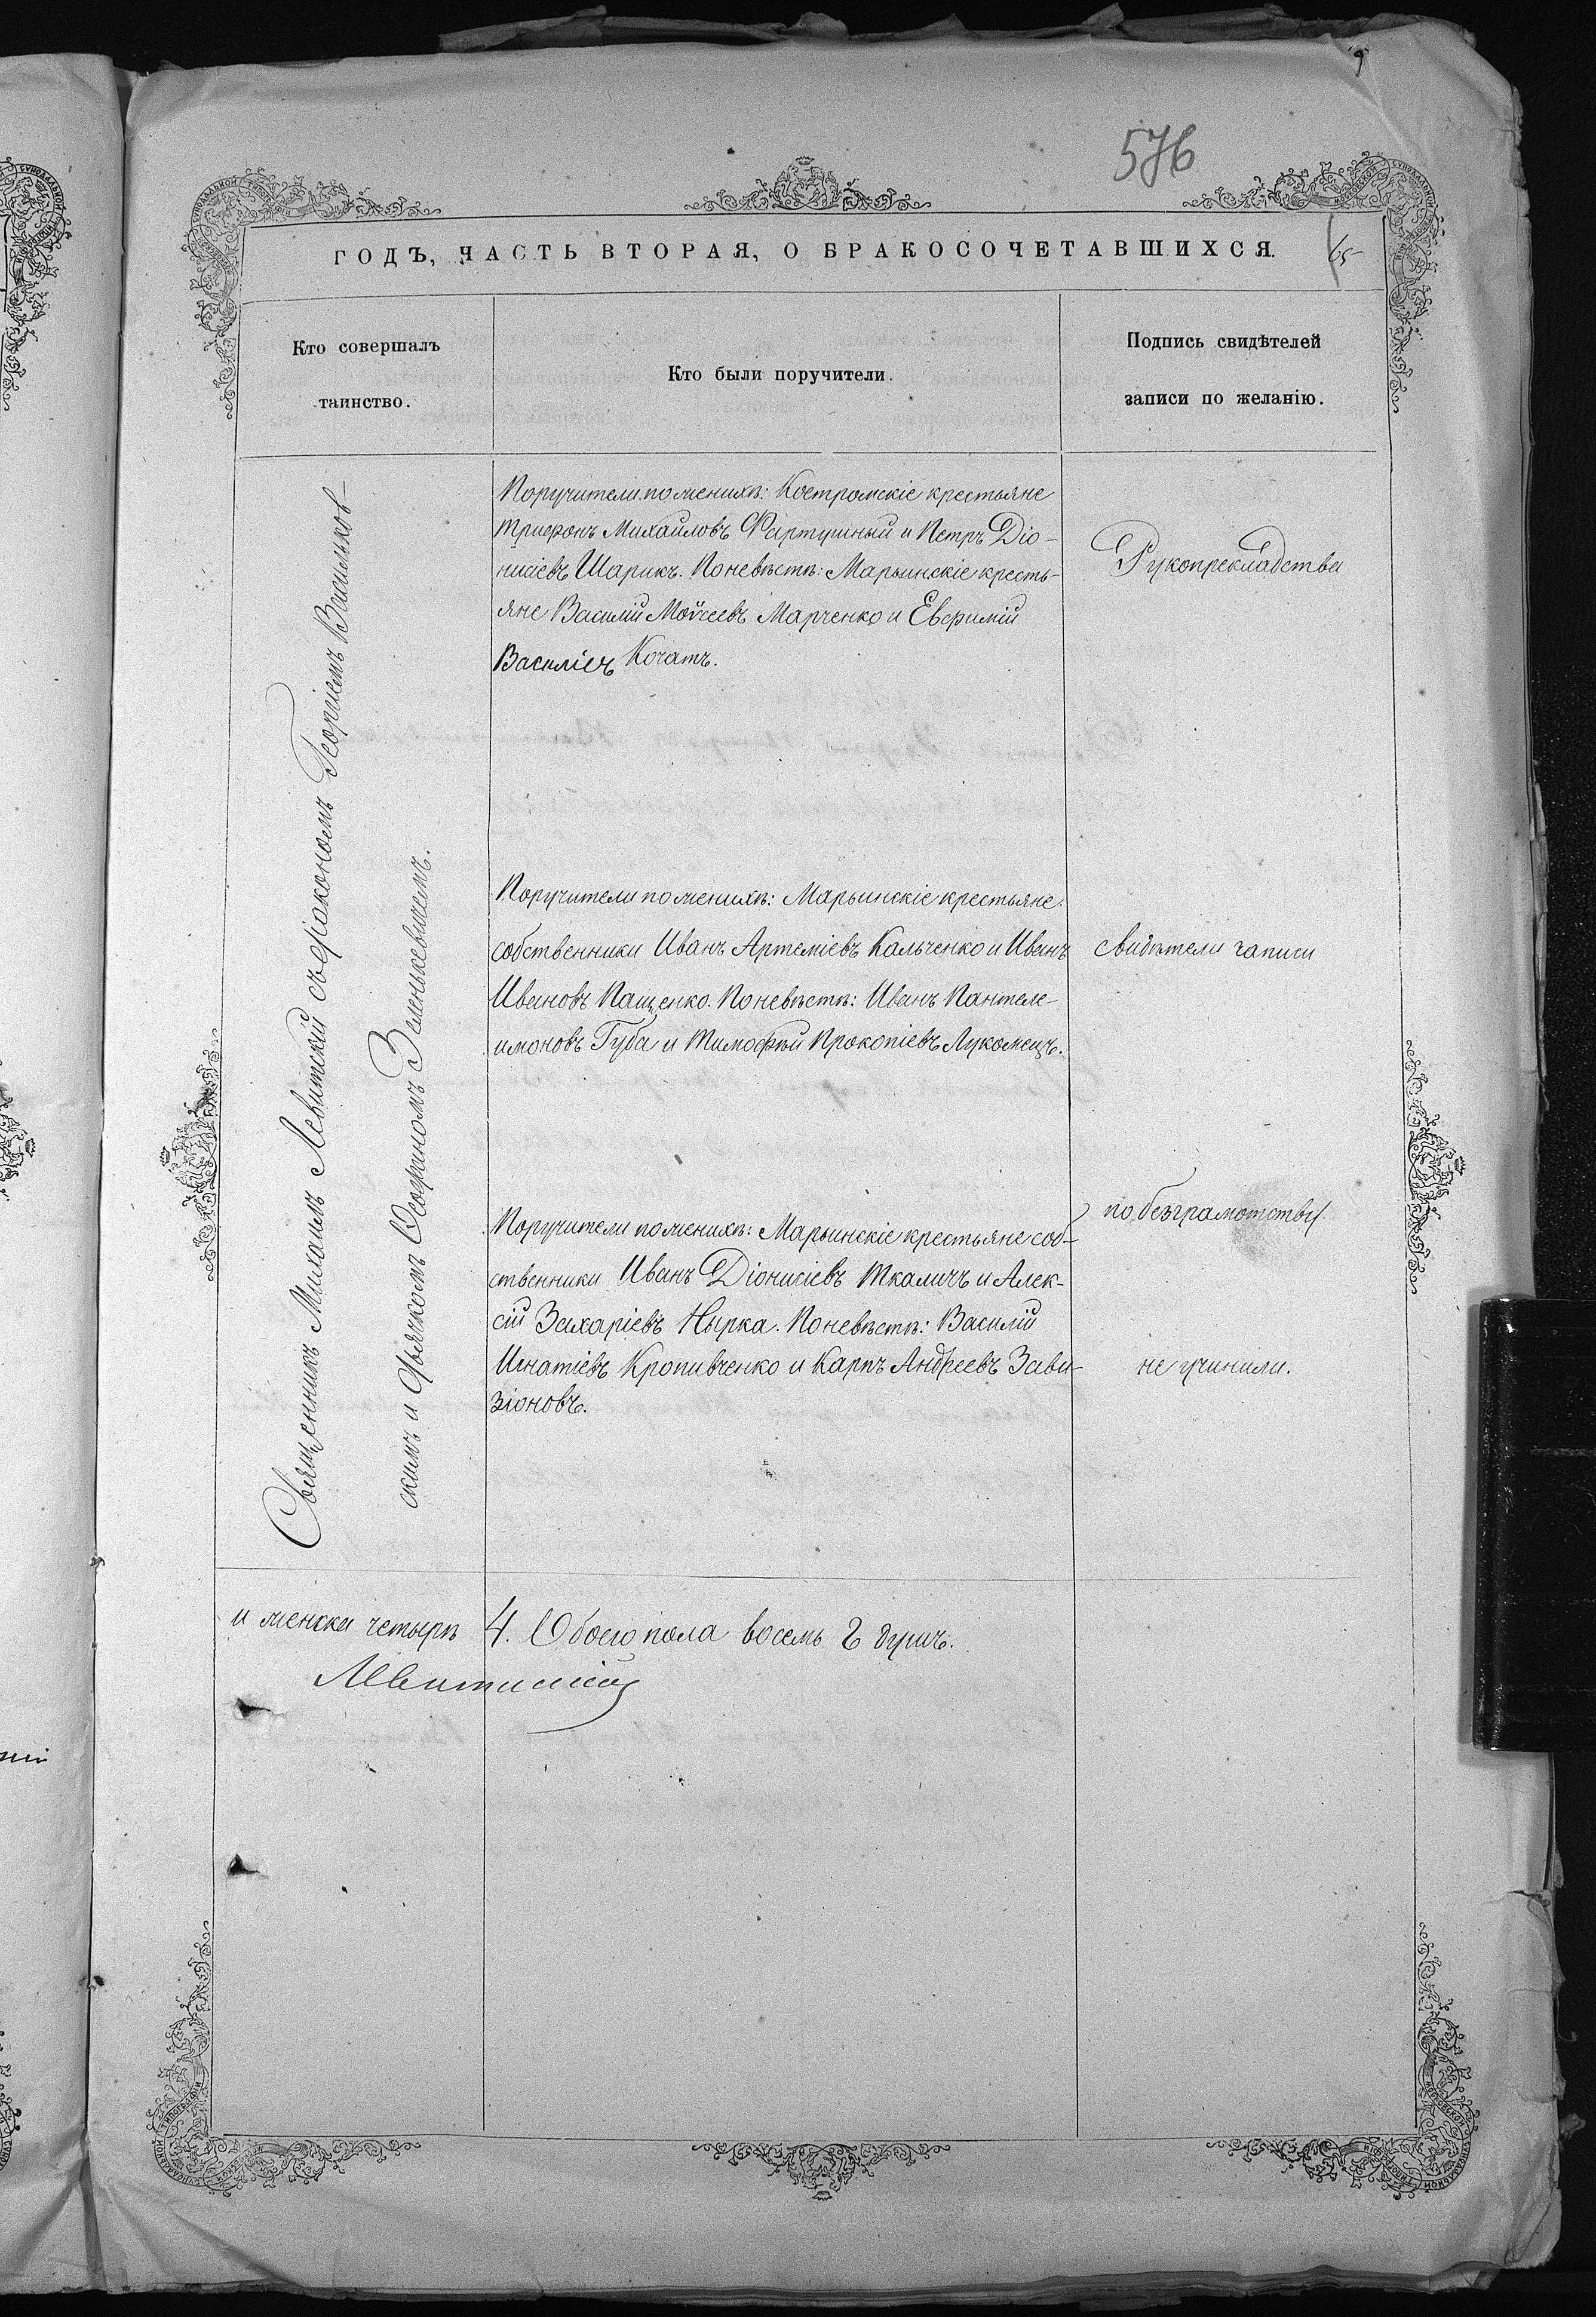 576
ГОДЪ, ЧАСТЬ ВТОРАЯ, О БРАКОСОЧЕТАВШИХСЯ.
65
Кто совершалъ
таинство.
Кто были поручители.
Подпись свидѣтелей
записи по желанію.
Священникъ Михаилъ Левитскій съ діакономъ Георгіемъ Васильков-
скимъ и дьячкомъ Ѳеофиномъ Зенькевичемъ.
Поручители по женихѣ: Костромскіе крестьяне
Трифонъ Михайловъ Фартушный и Петръ Діо-
нисіевъ Шарикъ. По невѣстѣ: Марьинскіе кресть-
яне Василій Мойсеевъ Марченко и Евфимій
Василіевъ Кочатъ.
Рукоприкладства
Поручители по женихѣ: Марьинскіе крестьяне
собственники Иванъ Артеміевъ Кальченко и Иванъ
Ивановъ Пащенко. По невѣстѣ: Иванъ Пантеле-
имоновъ Губа и Тимофѣй Прокопіевъ Лукомецъ.
свидѣтели записи
Поручители по женихѣ: Марьинскіе крестьяне соб-
ственники Иванъ Діонисіевъ Ткаличъ и Алек-
сій Захаріевъ Нырка. По невѣстѣ: Василій
Игнатіевъ Кропивченко и Карпъ Андреевъ Зави-
зіоновъ.
по безграмотству
не учинили.
и женска четыре 4. Обоего пола восемь 8 душъ.
Левитскій